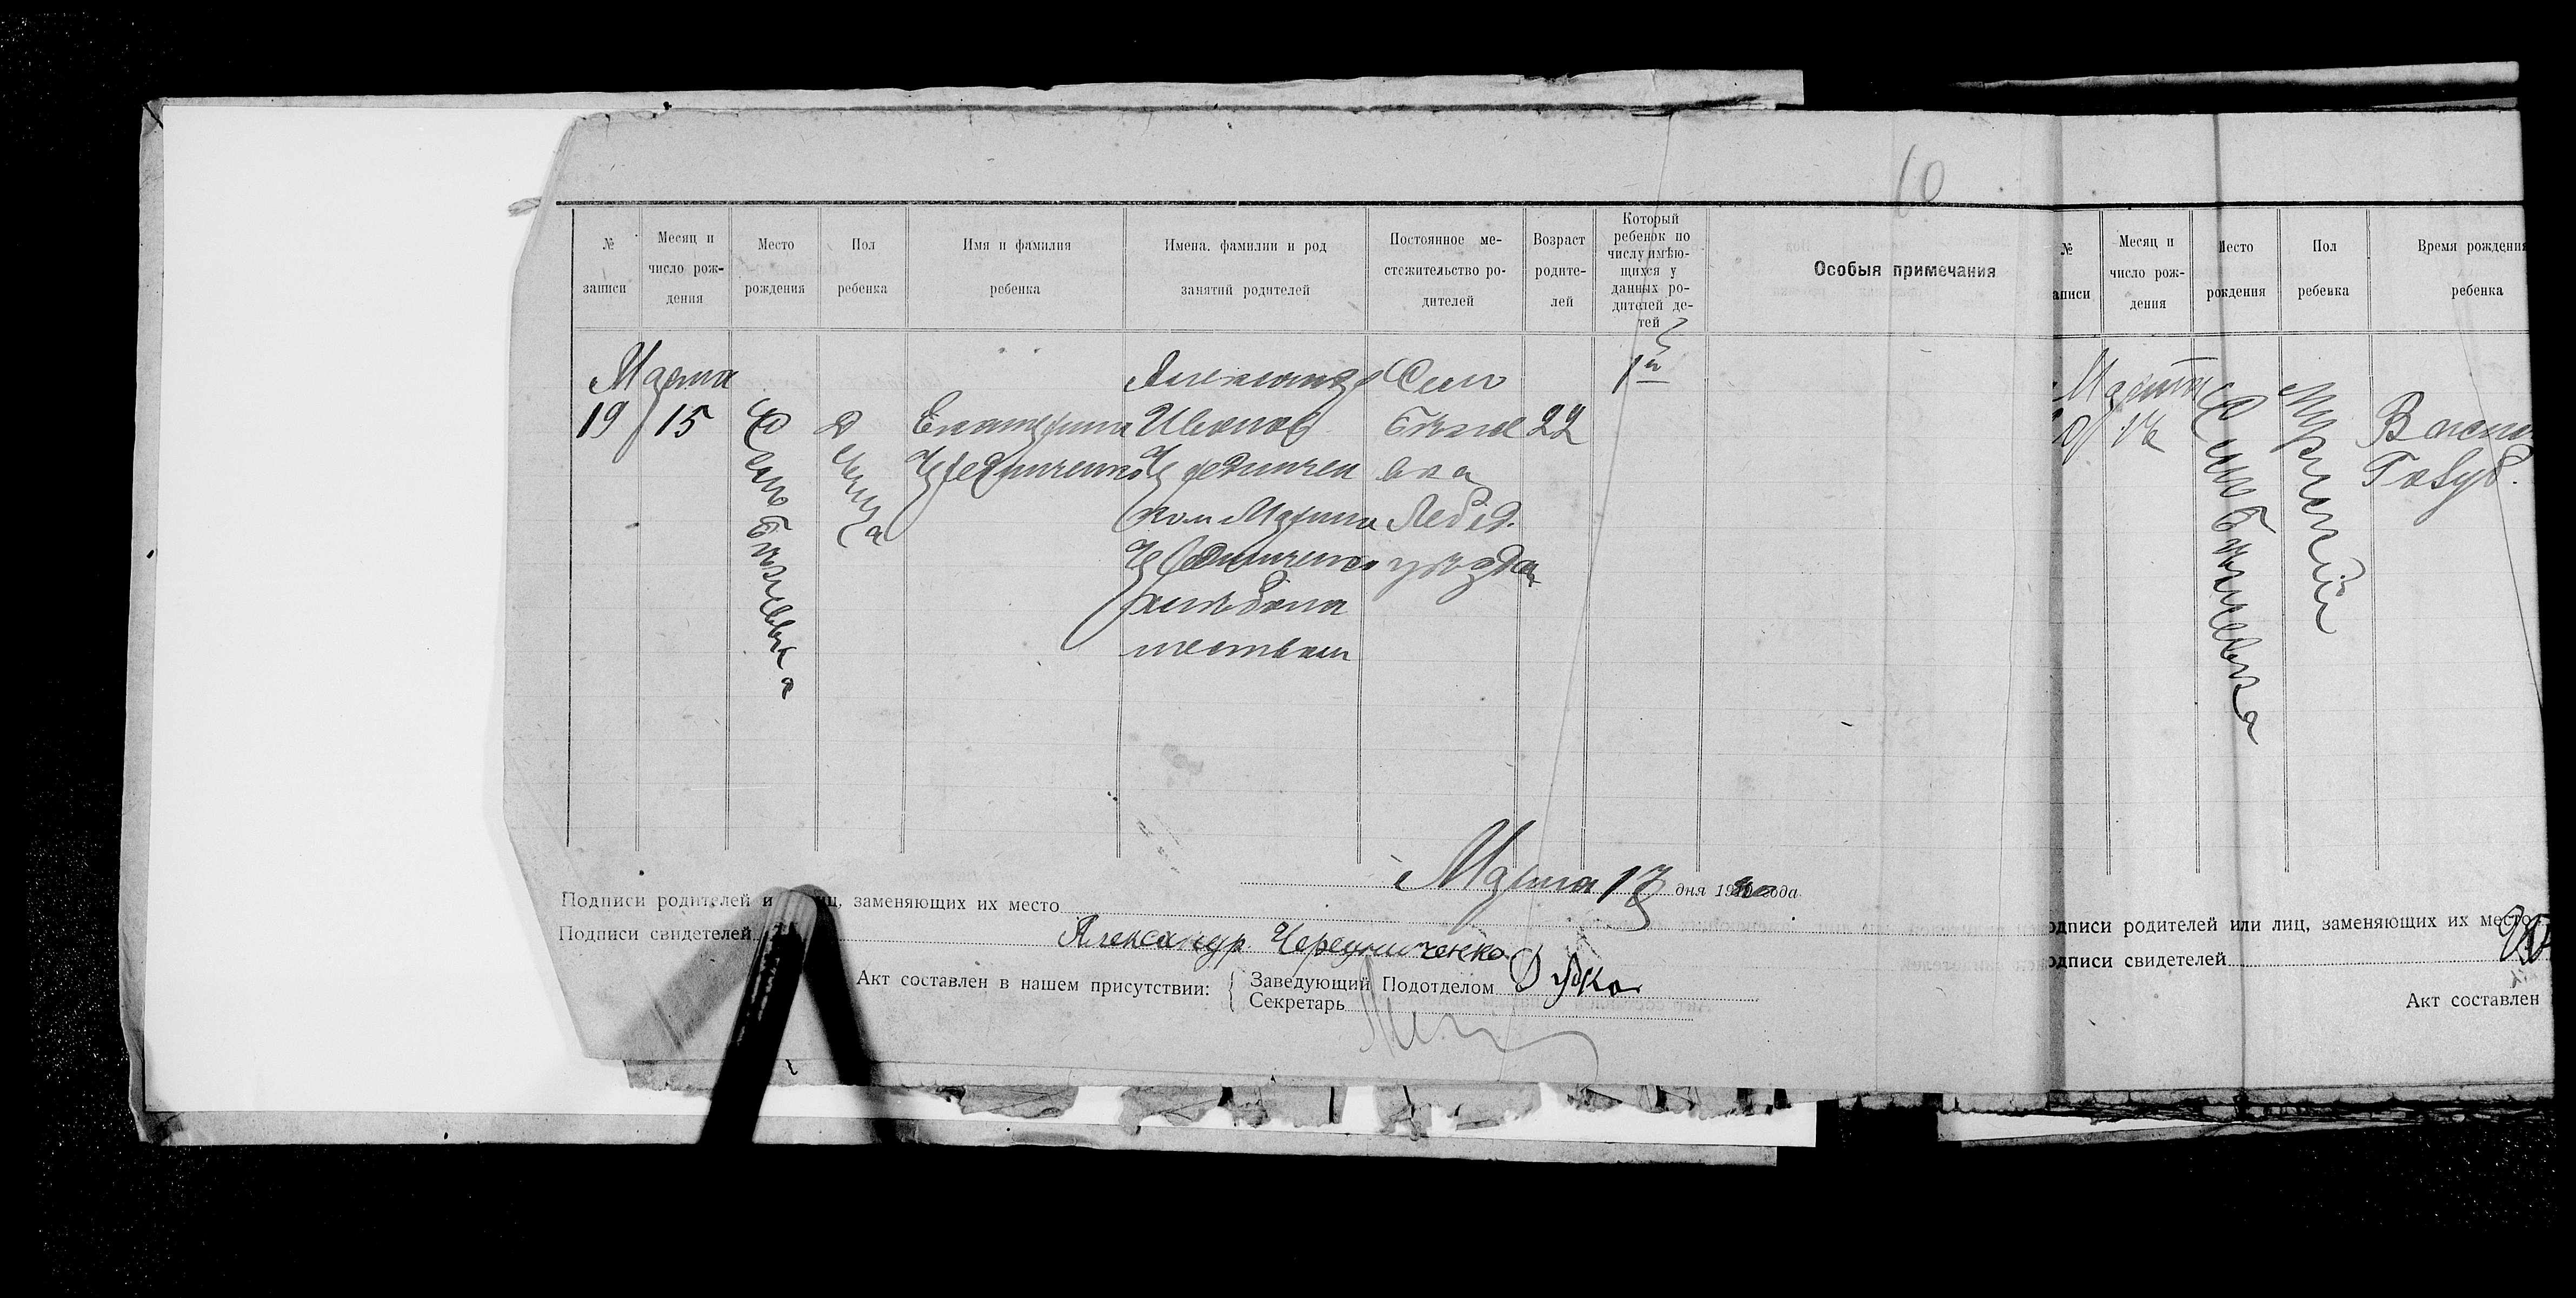 10
№ записи
Месяц и число рождения
Место рождения
Пол ребенка
Имя и фамилия ребенка
Имена, фамилии и род занятий родителей
Постоянное местожительство родителей
Возраст родителей
Который ребенок по числу имѣющихся у данных родителей детей
Особыя примечания
Марта
19 15
Село
Девица
Екатерина
Александр
Иванов
Село
22
1й
Марина
Лебед.
уѣзда
хлѣбопа
шествам
Марта 17 дня 19 года
Подписи родителей и лиц, заменяющих их место
Подписи свидетелей
Александр Чередниченко
Акт составлен в нашем присутствии:
Заведующий Подотделом Дудка
Секретарь
№ аписи
Месяц и число рождения
Место рождения
Пол ребенка
Время рождения ребенка
Марта
Село
Мужский
одписи родителей или лиц, заменяющих их место
одписи свидетелей
Акт составлен